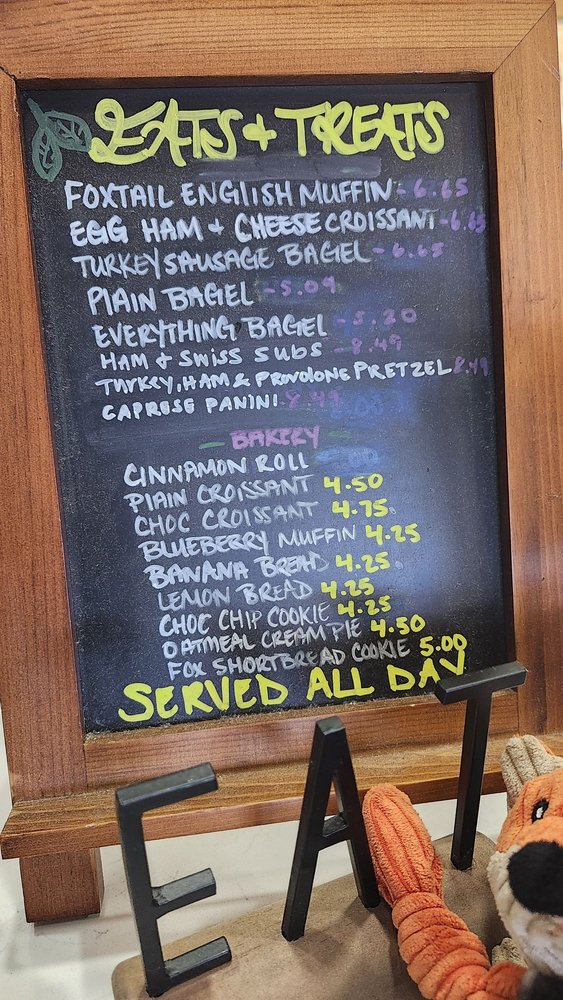 EATS + TREATS
FOXTAIL ENGLISH MUFFIN - 6.65
EGG HAM + CHEESE CROISSANT - 6.65
TURKEY SAUSAGE BAGEL - 6.65
PLAIN BAGEL - 5.09
EVERYTHING BAGEL - 5.20
HAM & SWISS SUBS - 8.49
TURKEY, HAM & PROVOLONE PRETZEL 8.49
CAPRESE PANINI 8.49
- BAKERY -
CINNAMON ROLL
PLAIN CROISSANT 4.50
CHOC CROISSANT 4.75
BLUEBERRY MUFFIN 4.25
BANANA BREAD 4.25
LEMON BREAD 4.25
CHOC CHIP COOKIE 4.25
OATMEAL CREAM PIE 4.50
FOX SHORTBREAD COOKIE 5.00
SERVED ALL DAY
EAT